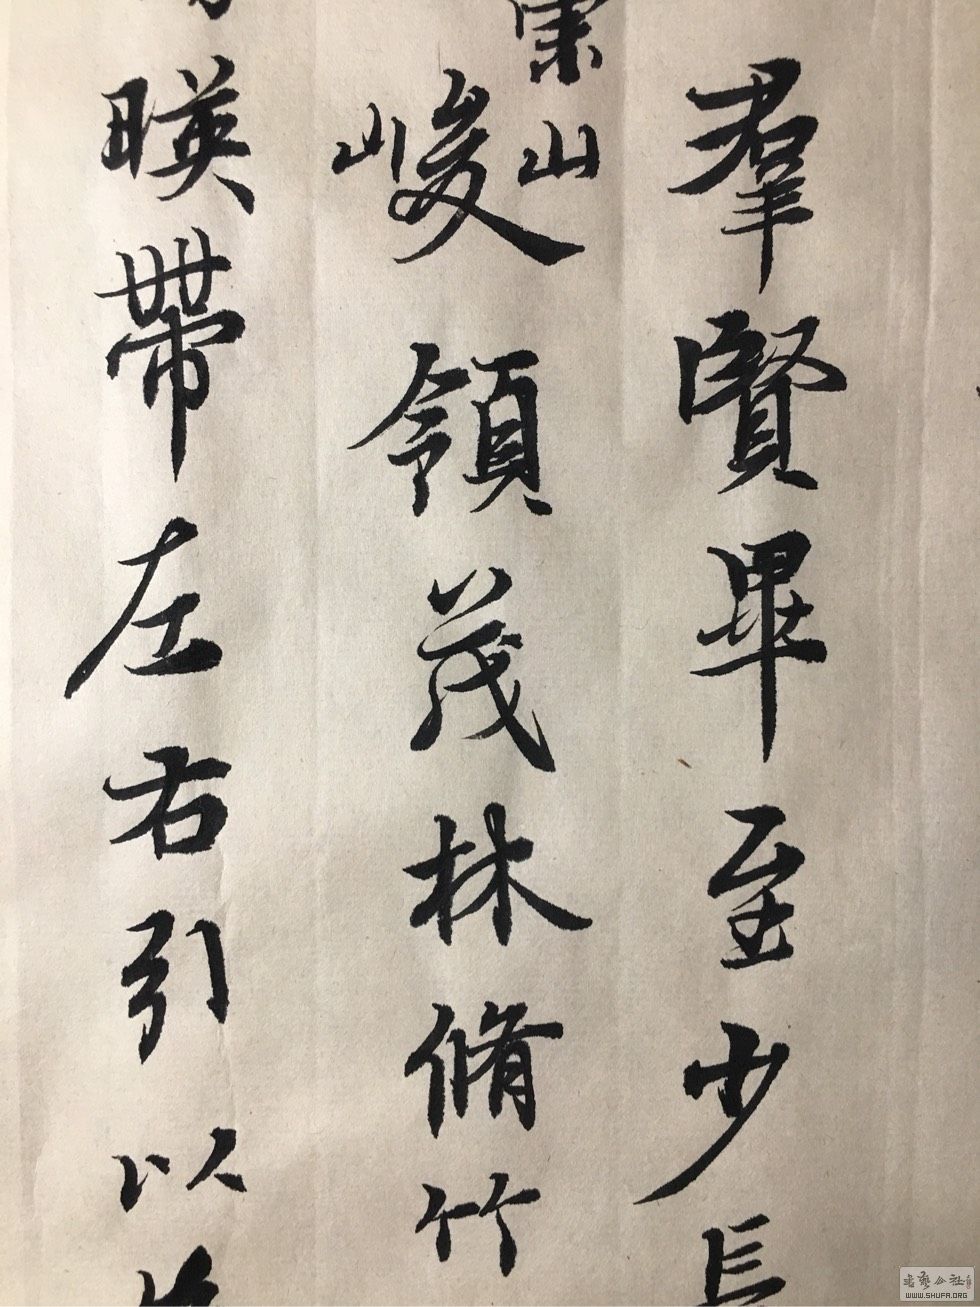 羣賢畢至少長
崇山
峻領茂林脩竹
暎帶左右引以
書藝公社
WWW.SHUFA.ORG